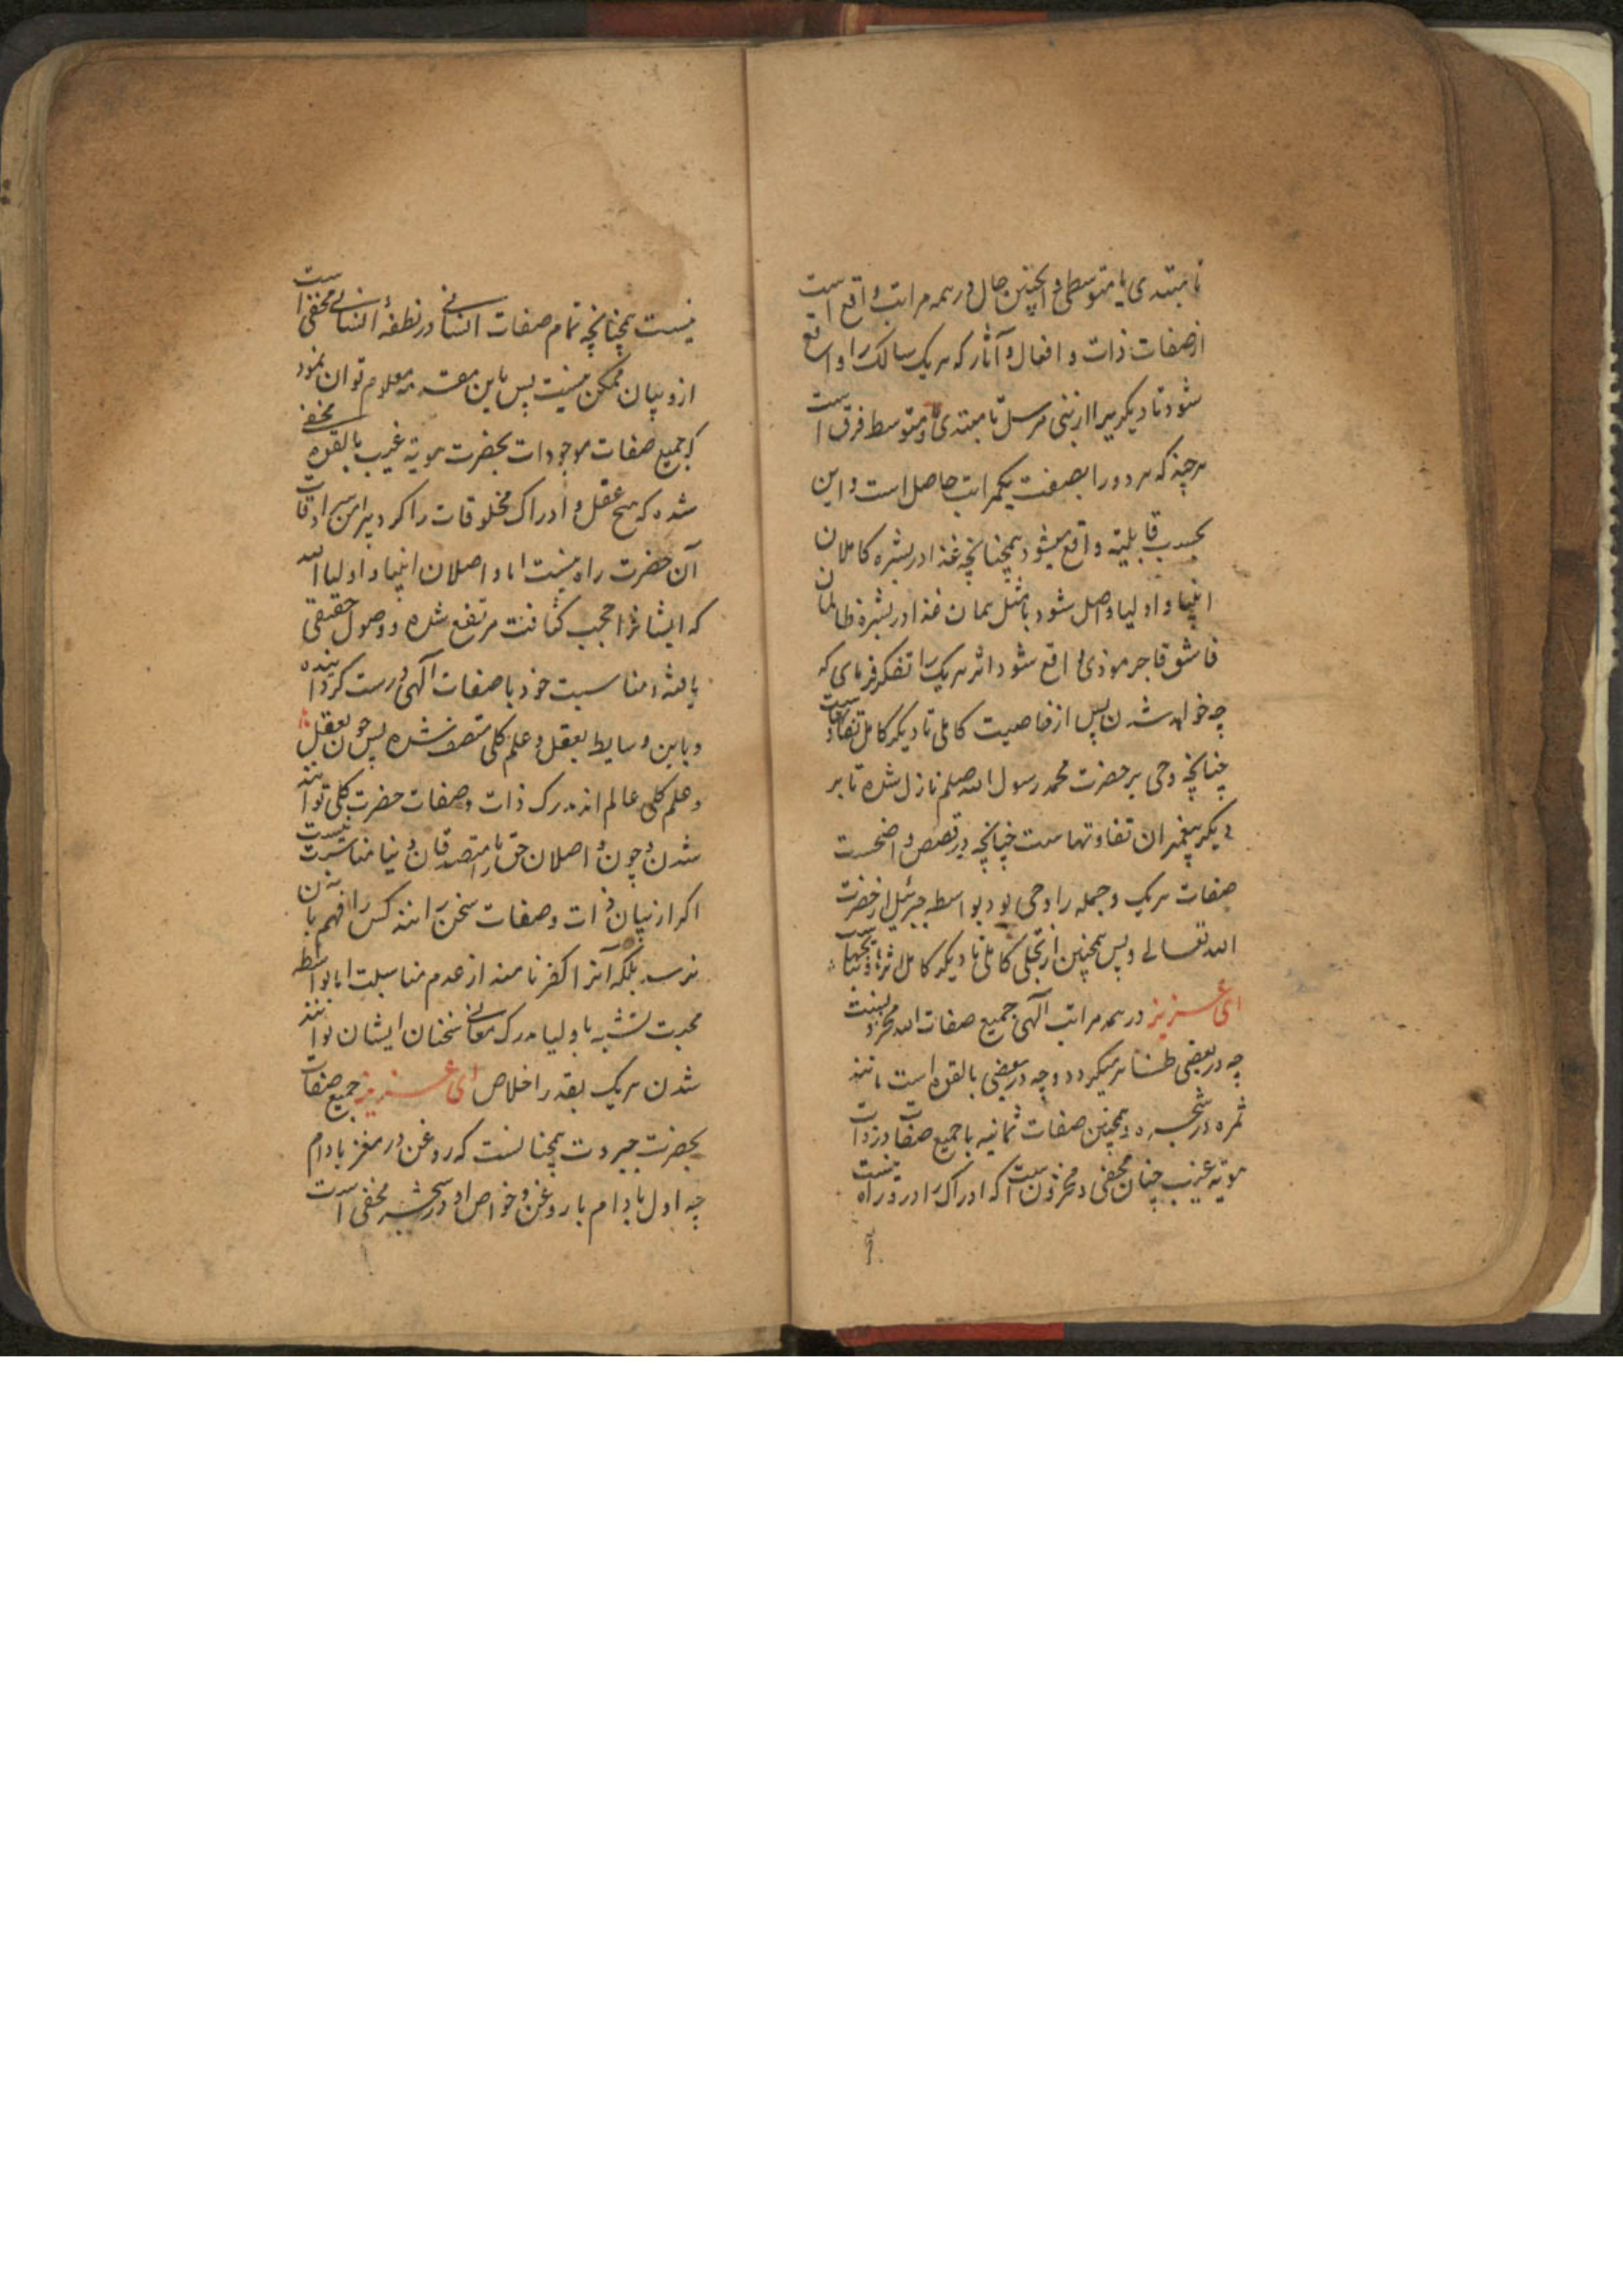 تا مبتدی یا متوسطی و همچنین حال در همه مراتب واقع است
از صفات ذات و افعال و آثار که هر یک سالک را واقع
شود تا دیگریرا از نبی مرسل تا مبتدی و متوسط فرق است
هرچند که هر دو را بصفت یکمراتب حاصل است و این
بحسب قابلیة واقع میشود همچنانچه غذا در بشره کاملان
انبیا و اولیا واصل شود باز مثل همان غذا در بشره ظالمان
فاسق فاجر موذی واقع شود اثر هریک را تفکر فرمای که
چه خواهد شدن پس از خاصیت کاملی تا دیگر کامل تفاوتهاست
چنانچه وحی بر حضرت محمد رسول الله صلعم نازل شده تا بر
دیگر پیغمبران تفاوتهاست چنانچه در قصص واضحست
صفات هریک و جمله را وحی بود بواسطه جبرئیل از حضرت
الله تعالی و پس همچنین از تجلی کاملی تا دیگر کامل
ای عزیز در همه مراتب الهی جمیع صفات الله
چه در بعضی ظاهر میگردد و چه در بعضی بالقوه است مانند
ثمره در شجره و همچنین صفات ثمانیه با جمیع صفات در ذات
هویة غیب چنان مخفی و مخزون است که ادراک را در و راه نیست
نیست همچنانچه تمام صفات انسانی در نطفهٔ انسانی مخفی است
از و بیان ممکن نیست پس باین مقدمه معلوم توان نمود
که جمیع صفات موجودات بحضرت هویة غیب بالقوه مخفی
شده که هیچ عقل و ادراک مخلوقات را گرد پیرامن سرادقات
آن حضرت راه نیست اما واصلان انبیا و اولیا الله
که ایشانرا حجب کثافت مرتفع شده و وصول حقیقی
یافته و مناسبت خود با صفات الهی درست کرده اند
و باین وسایط بعقل و علم کلی متصف شده پس چون بعقل
و علم کلی عالم اند مدرک ذات و صفات حضرت کلی توانند
شدن و چون واصلان حق را با متصدقان دنیا مناسبت نیست
اگر از بیان ذات و صفات سخن رانند کس را فهم بآن
نرسد بلکه آنرا کفر نامند از عدم مناسبت اما بواسطه
محبت تشبه باولیا مدرک معانی سخنان ایشان توانند
شدن هریک بقدر اخلاص ای عزیز جمیع صفات
بحضرت جبروت همچنانست که روغن در مغز بادام
چه اول بادام با روغن و خواص او در شجر مخفی است